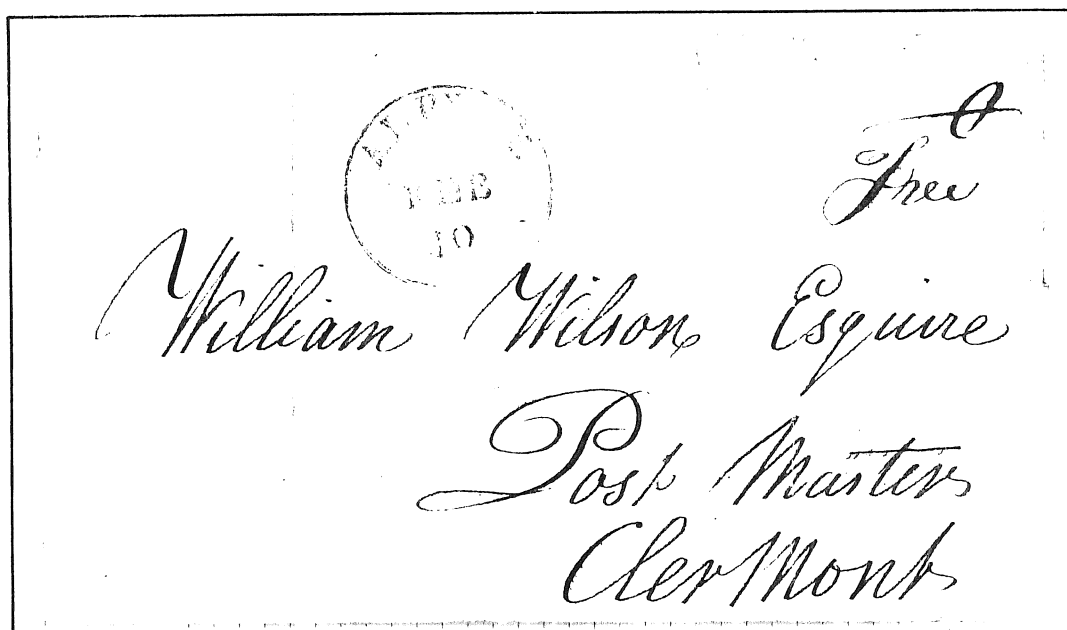 FEB
10
Free
William Wilson Esquire
Post Master
ClerMont